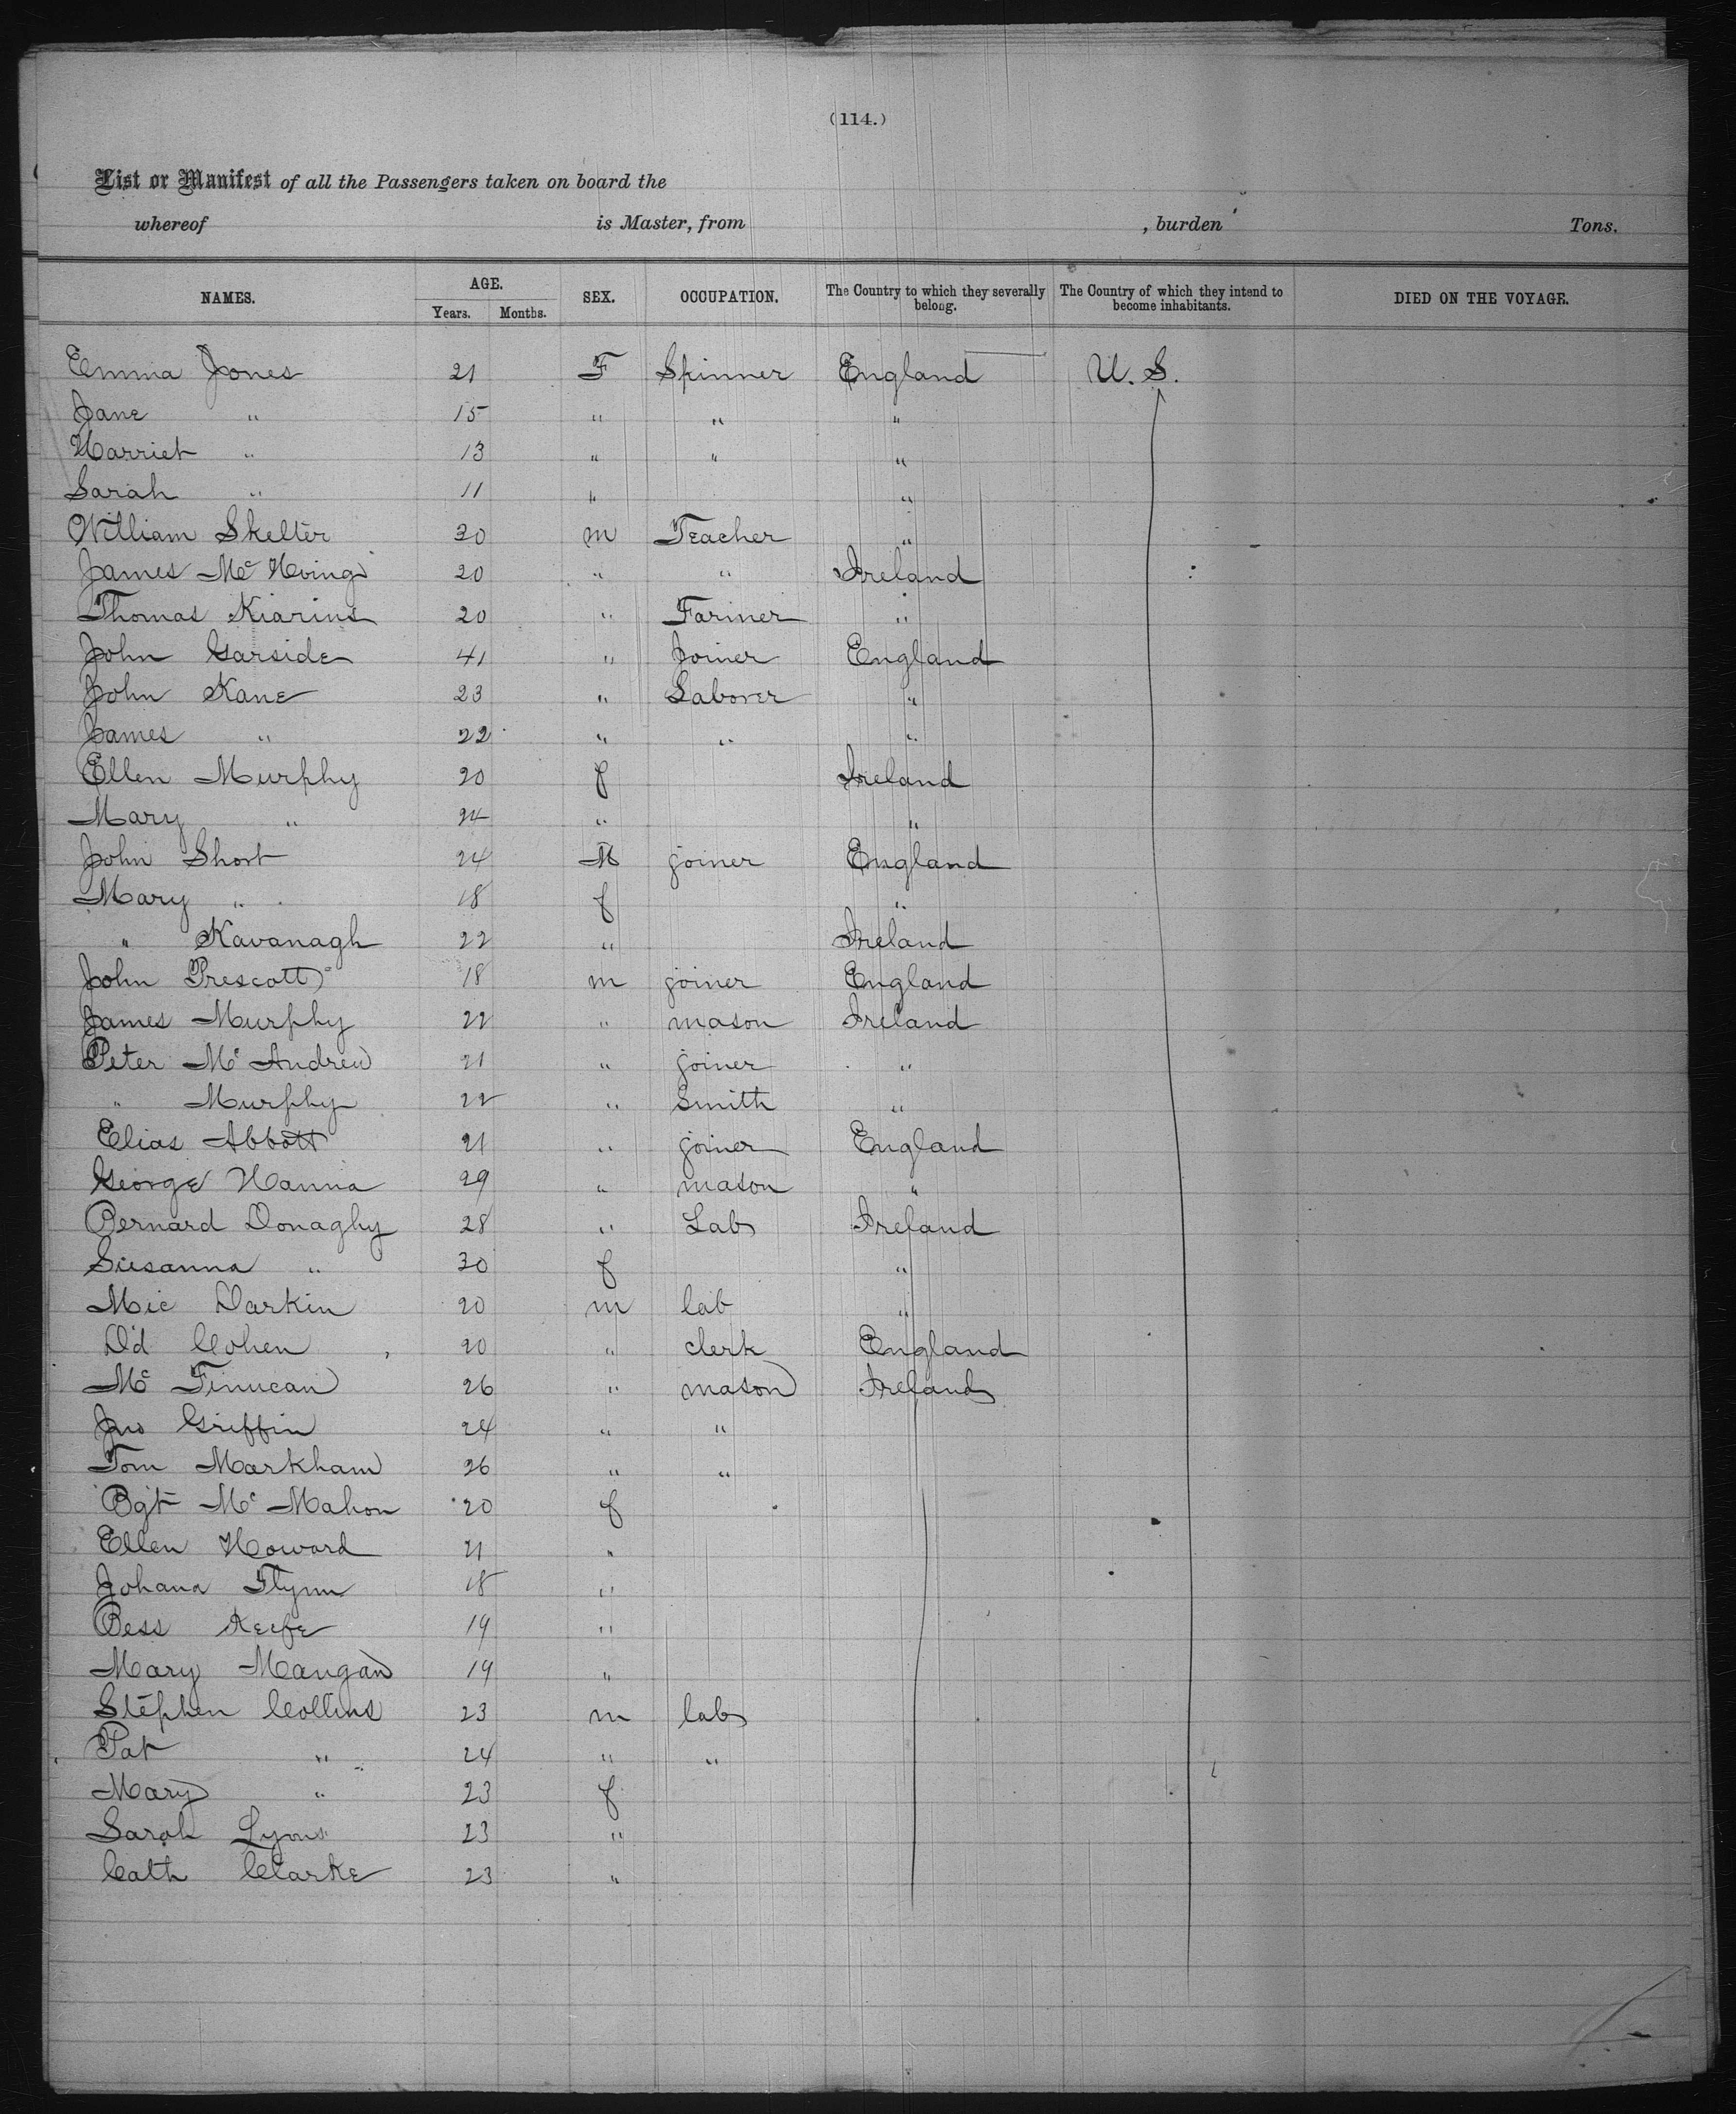 (114.)
List or Manifest of all the Passengers taken on board the
whereof is Master, from , burden Tons.
NAMES. AGE. Years. Months. SEX. OCCUPATION. The Country to which they severally belong. The Country of which they intend to become inhabitants. DIED ON THE VOYAGE.
Emma Jones 21 F Spinner England U. S.
Jane " 15 " " "
Harriet " 13 " " "
Sarah " 11 " "
William Skelter 30 m Teacher "
James Mc 20 " " Ireland
Thomas Kiarins 20 " Farmer "
John Garside 41 " Joiner England
John Kane 23 " Laborer "
James " 22 " " "
Ellen Murphy 20 f Ireland
Mary " 24 " "
John Short 24 M joiner England
Mary " 18 f "
" Kavanagh 22 " Ireland
John Prescott 18 m joiner England
James Murphy 22 " mason Ireland
Peter Mc Andrew 21 " joiner "
" Murphy 22 " Smith "
Elias Abbott 21 " joiner England
George Hanna 29 " mason "
Bernard Donaghy 28 " Lab Ireland
Susanna " 30 f "
Mic Darkin 20 m lab "
Dd Cohen 20 " clerk England
Mc Finucan 26 " mason Ireland
Jno Griffin 24 " "
Tom Markham 26 " "
Bgt Mc Mahon 20 f
Ellen Howard 21 "
Johana Flynn 18 "
Bess Keefe 19 "
Mary Mangan 19 "
Stephen Collins 23 m lab
Pat " 24 " "
Mary " 23 f
Sarah Lyons 23 "
Cath Clarke 23 "